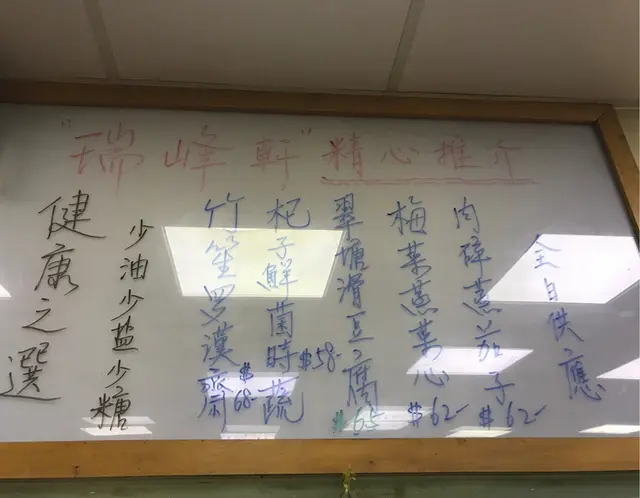 "瑞峰軒"精心推介
全日供應
肉碎蒸茄子 $62-
梅菜蒸菜心 $62-
翠塘滑豆腐 $65
杞子鮮菌時蔬 $58-
竹笙罗漢齋 $68-
少油少盐少糖
健康之選